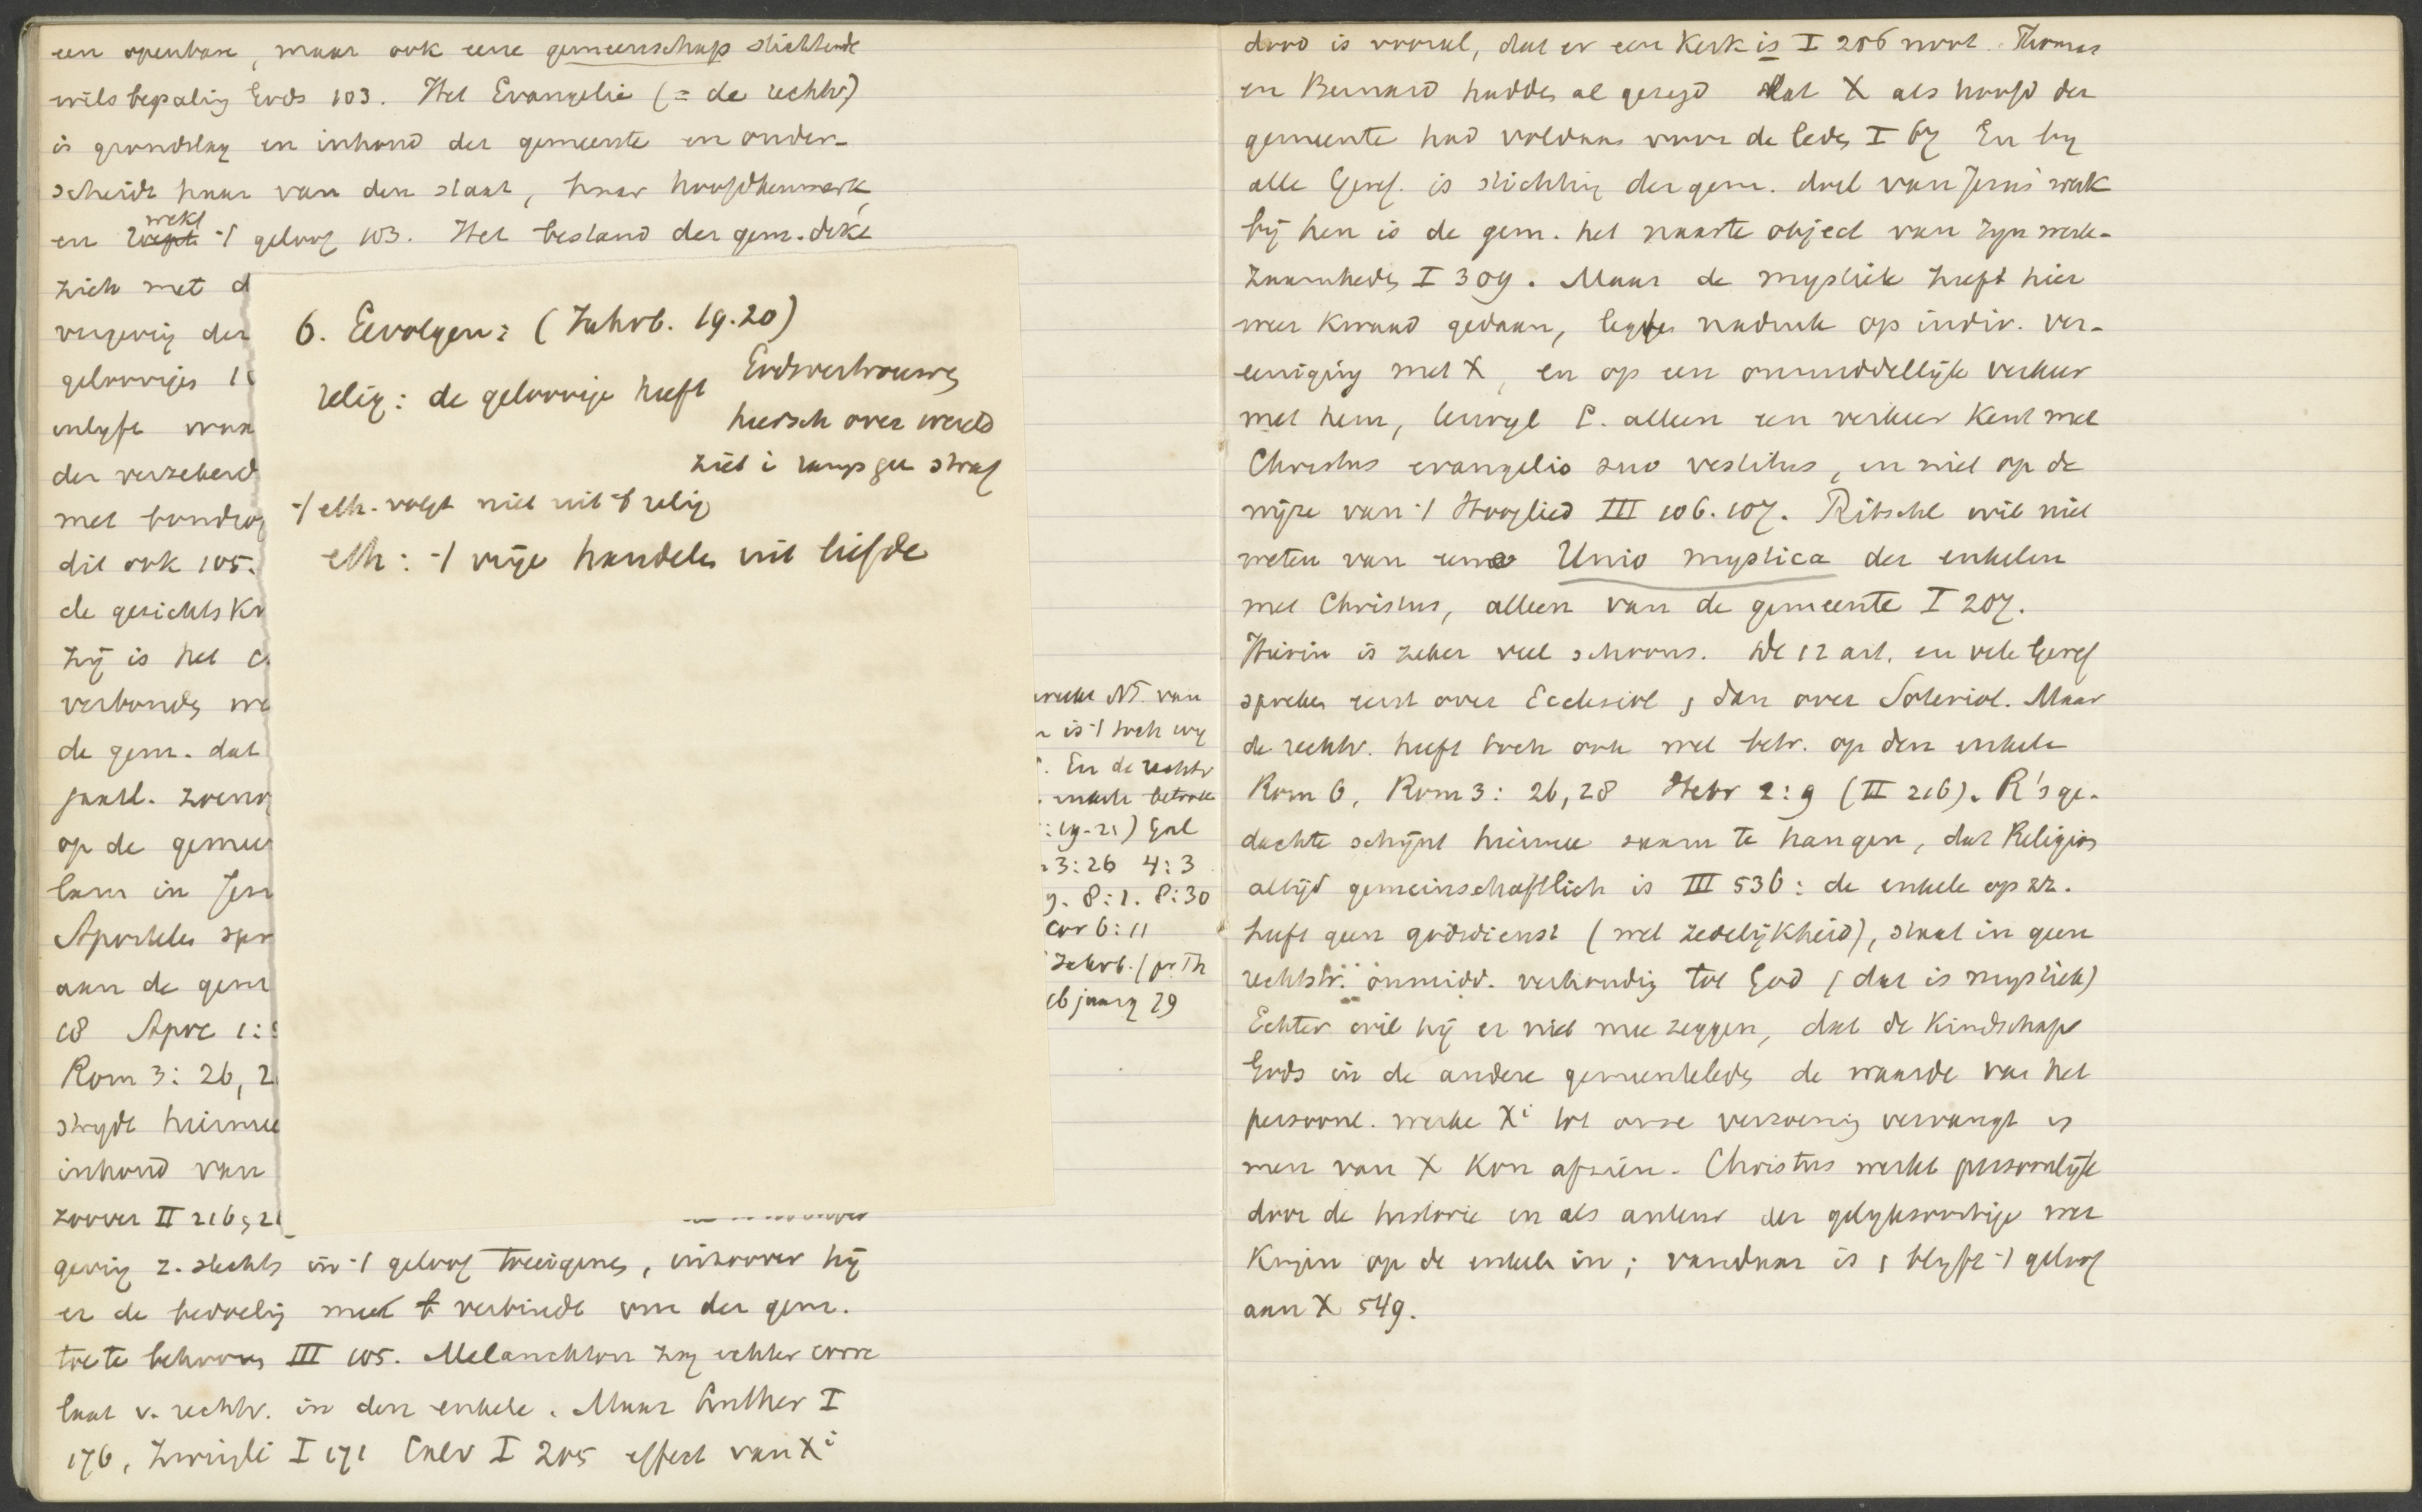 een openbare, maar ook eene gemeenschap stichtende
wilsbepaling Gods 103. Het Evangelie (= de rechtv)
is grondslag en inhoud der gemeente en onder-
scheidt haar van den staat, haar hoofdkenmerk,
wekt
en roept -/ geloof 103. Het bestand der gem. dekt
zich met d
vergevig der
geloovigen 1
inlyft waa
der verzekerd
met bondsg
dit ook 105.
de gezichtskr
zij is het c
verbonds we
de gem. dat
jaarl. zoeno
op de gemee
lam in Jer
Apostelen spr
aan de gem
18 Apoc 1:5
Rom 3: 26, 2
strydt hiermee
inhoud van
zoover II 216, 21
gevig z. slechts in -/ geloof toeëigenes, inzoover hij
er de bedoelig meê verbindt om der gem.
toe te behoores III 105. Melanchton zag echter corre
laat v. rechtv. in den enkele. Maar Luther I
176, Zwingli I 171 Calv I 205 effect van Xi
6. Gevolgen: (Jahrb. 19.20)
Godsvertrouwes
relig: de geloovige heeft
heersch over wereld
ziet i ramp gee straf
-/ eth. volgt niet uit -/ relig
eth: -/ vrije handeles uit liefde
NT. van
is -/ toch wy
. En de rechtv
enkele betrok
: 19-21) Gal
3:26 4:3
9. 8:1. 8:30
Cor 6:11
Jahrb. / pr Th
16 jaarg 29
dood is vooral, dat er een Kerk is I 206 noot. Thomas
en Bernard haddes al gezegd dat X als hoofd der
gemeente had voldaan voor de ledes I 67 En by
alle Geref. is stichtig der gem. doel van Jezus' werk
bij hen is de gem. het naaste object van zyn werk-
zaamhedes I 309. Maar de mystiek heeft hier
weer kwaad gedaan, legdes nadruk op indiv. ver-
eeniging met X, en op een onmiddellijk verkeer
met hem, terwyl L. alleen een verkeer kent met
Christus evangelio suo vestitus, en niet op de
wijze van -/ Hooglied III 106.107. Ritschl wil niet
weten van eene Unio mystica der enkelen
met Christus, alleen van de gemeente I 207.
Hierin is zeker veel schoons. De 12 art. en vele Geref
spreken eerst over Ecclesiol, dan over Soteriol. Maar
de rechtv. heeft toch ook wel betr. op den enkele
Rom 6, Rom 3: 26, 28 Hebr 2:9 (II 216). R's ge-
dachte schijnt hiermee saam te hangen, dat Religion
altijd gemeinschaftlich is III 536: de enkele op zz.
heeft geen godsdienst (wel zedelijkheid), staat in geen
rechtstr. onmidd. verhoudig tot God (dat is mystiek)
Echter wil hij er niet mee zeggen, dat de Kindschap
Gods in de andere gemeenteledes de waarde van het
persoonl. werke Xi tot onze verzoenig vervangt en
men van X kon afzien. Christus werkt persoonlijk
door de historie en als auteur der gelyksoortige wer
Kingen op de enkele in; vandaar is, blyft -/ geloof
aan X 549.